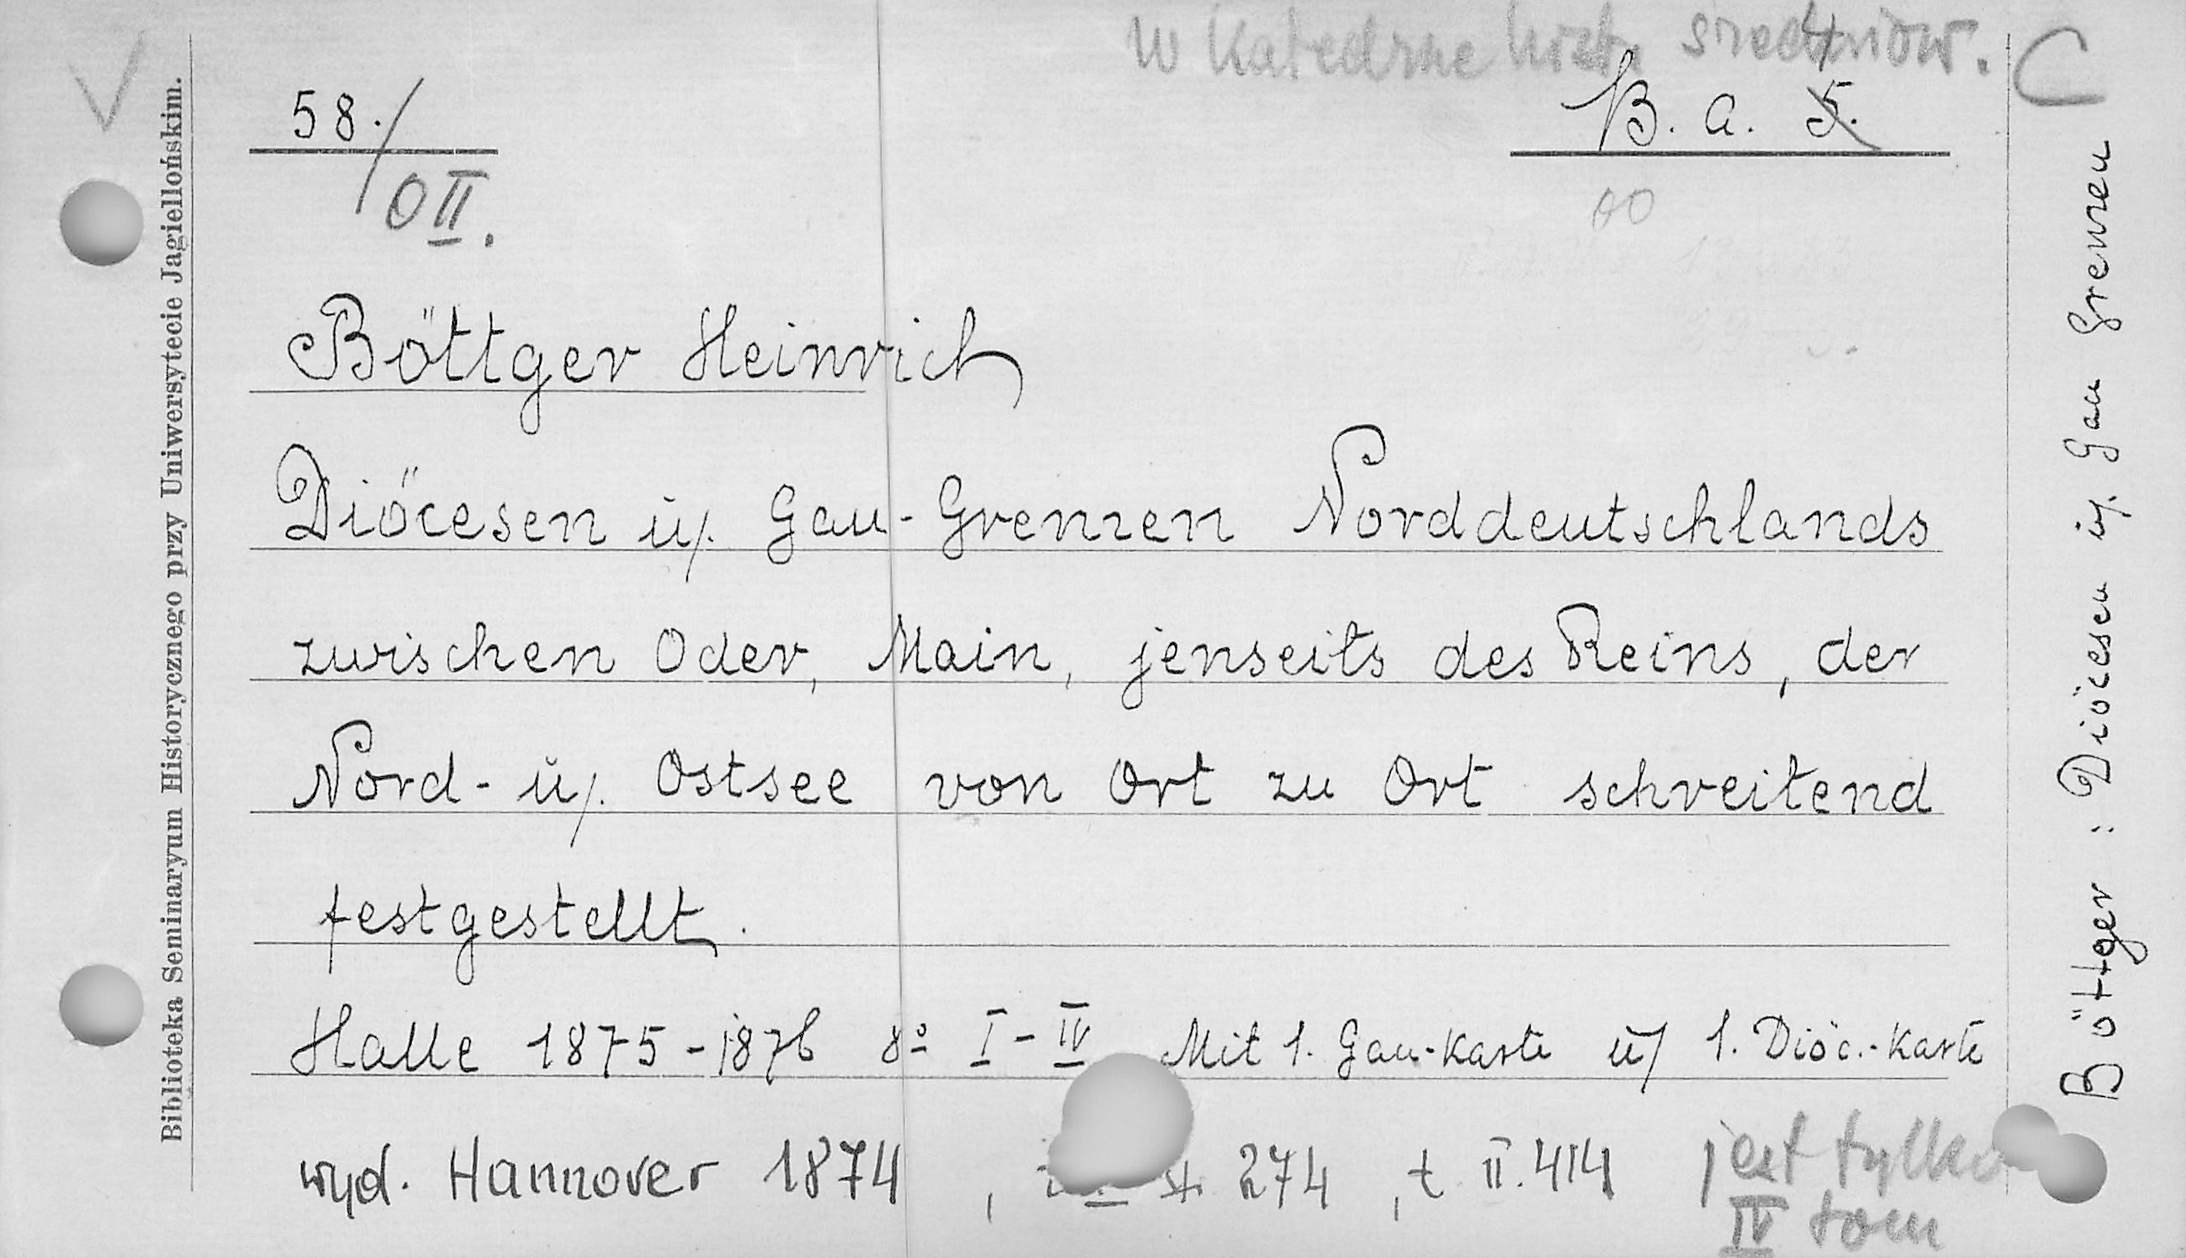 w Katedrze hist. średniow.
C
58./
B. a. 5. 4
O II.
Böttger Heinrich
Diöcesen u. Gau-Grenzen Norddeutschlands
zwischen Oder, Main, jenseits des Reins, der
Nord- u. Ostsee von Ort zu Ort schreitend
festgestellt.
Halle 1875-1876 8º I-IV Mit 1. Gau-Karte u 1. Diöc.-Karte
wyd. Hannover 1874, 274, t II. 414
jest tylko
IV tom
Biblioteka Seminaryum Historycznego przy Uniwersytecie Jagiellońskim.
Böttger: Diöcesen u. Gau Grenzen